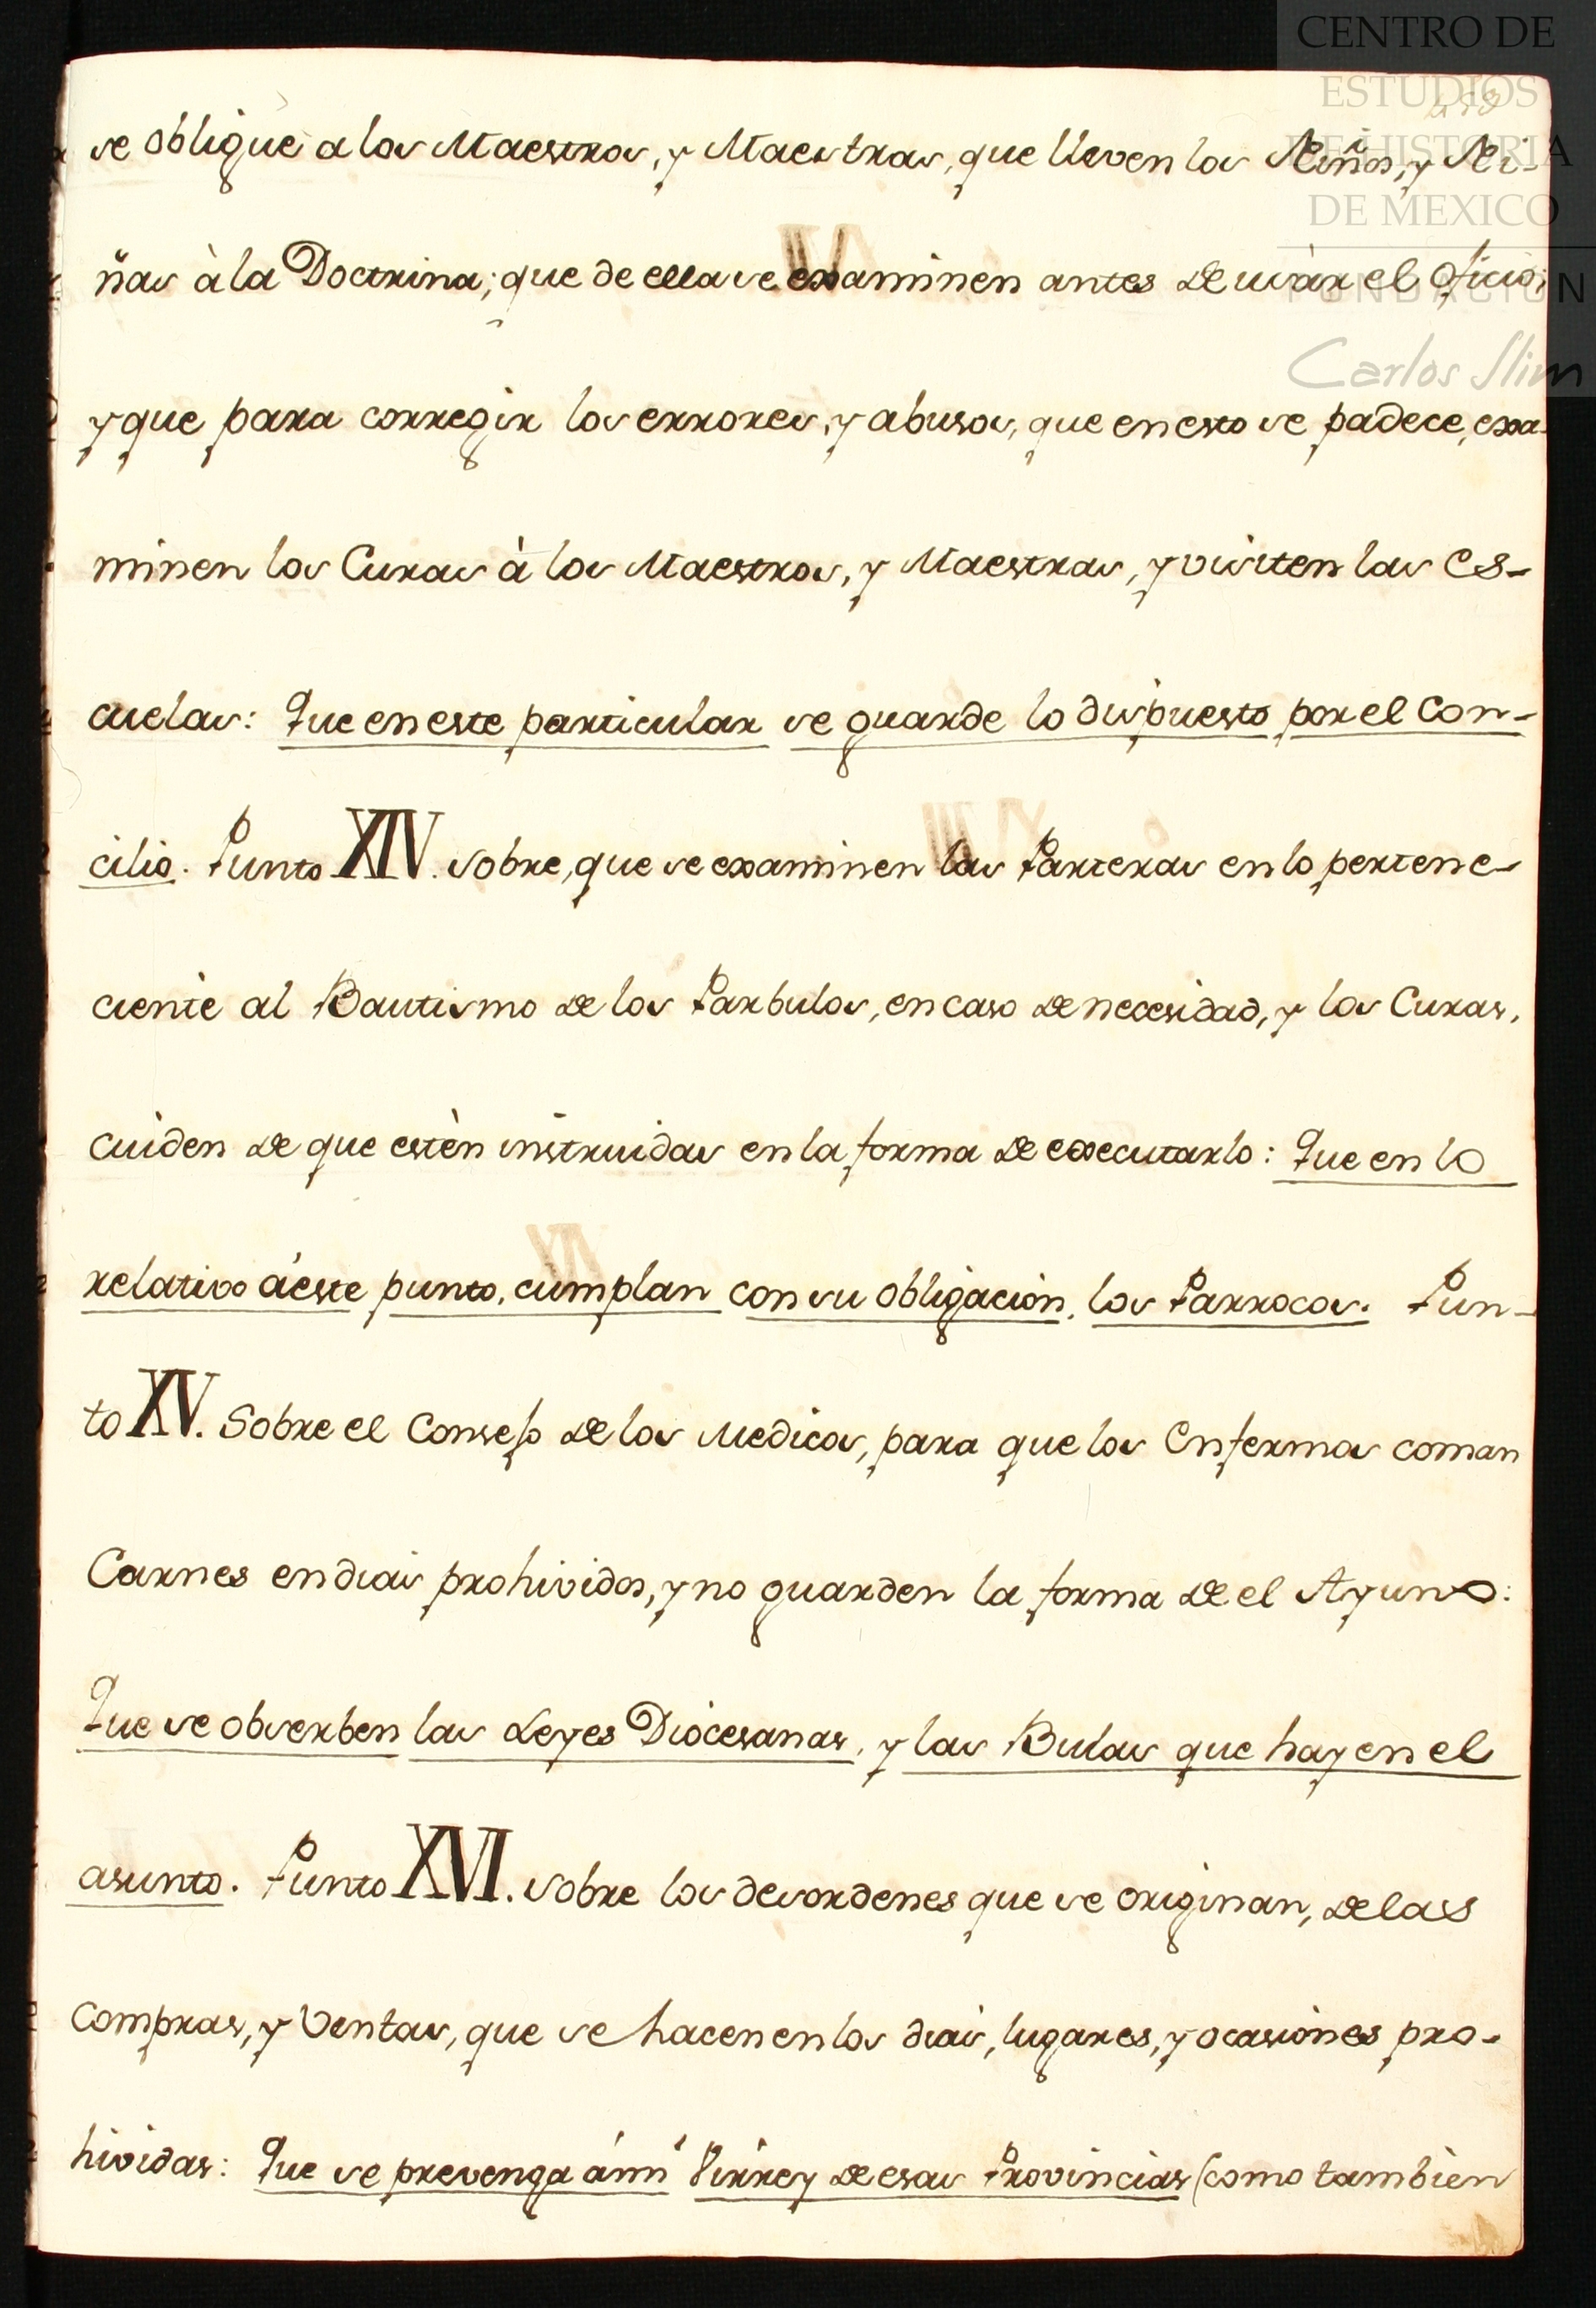 CENTRO DE
ESTUDIOS
DE HISTORIA
DE MEXICO
FUNDACIÓN
Carlos Slim
se obligue a los Maestros, y Maestras, que lleven los Niños, y Ni-
ñas à la Doctrina; que de ella se examinen antes de usàr el Oficio;
y que para corregir los errores, y abusos, que en esto se padece, exa-
minen los Curas à los Maestros, y Maestras, y visiten las Es-
cuelas: Que en este particular se guarde lo dispuesto por el Con-
cilio. Punto XIV. Sobre, que se examinen las Parteras en lo pertene-
ciente al Bautismo de los Parbulos, en caso de necesidad, y los Curas,
cuiden de que estèn instruidas en la forma de executarlo: Que en lo
relativo á este punto, cumplan con su obligacion, los Parrocos. Pun-
to XV. Sobre el Consejo de los Medicos, para que los Enfermos coman
Carnes en dias prohividos, y no guarden la forma de el Ayuno:
Que se obserben las Leyes Diocesanas, y las Bulas que hay en el
asunto. Punto XVI. Sobre los desordenes que se originan, de las
Compras, y Ventas, que se hacen en los dias, lugares, y ocasiones pro-
hividas: Que se prevenga á mi Virrey de esas Provincias (como tambien